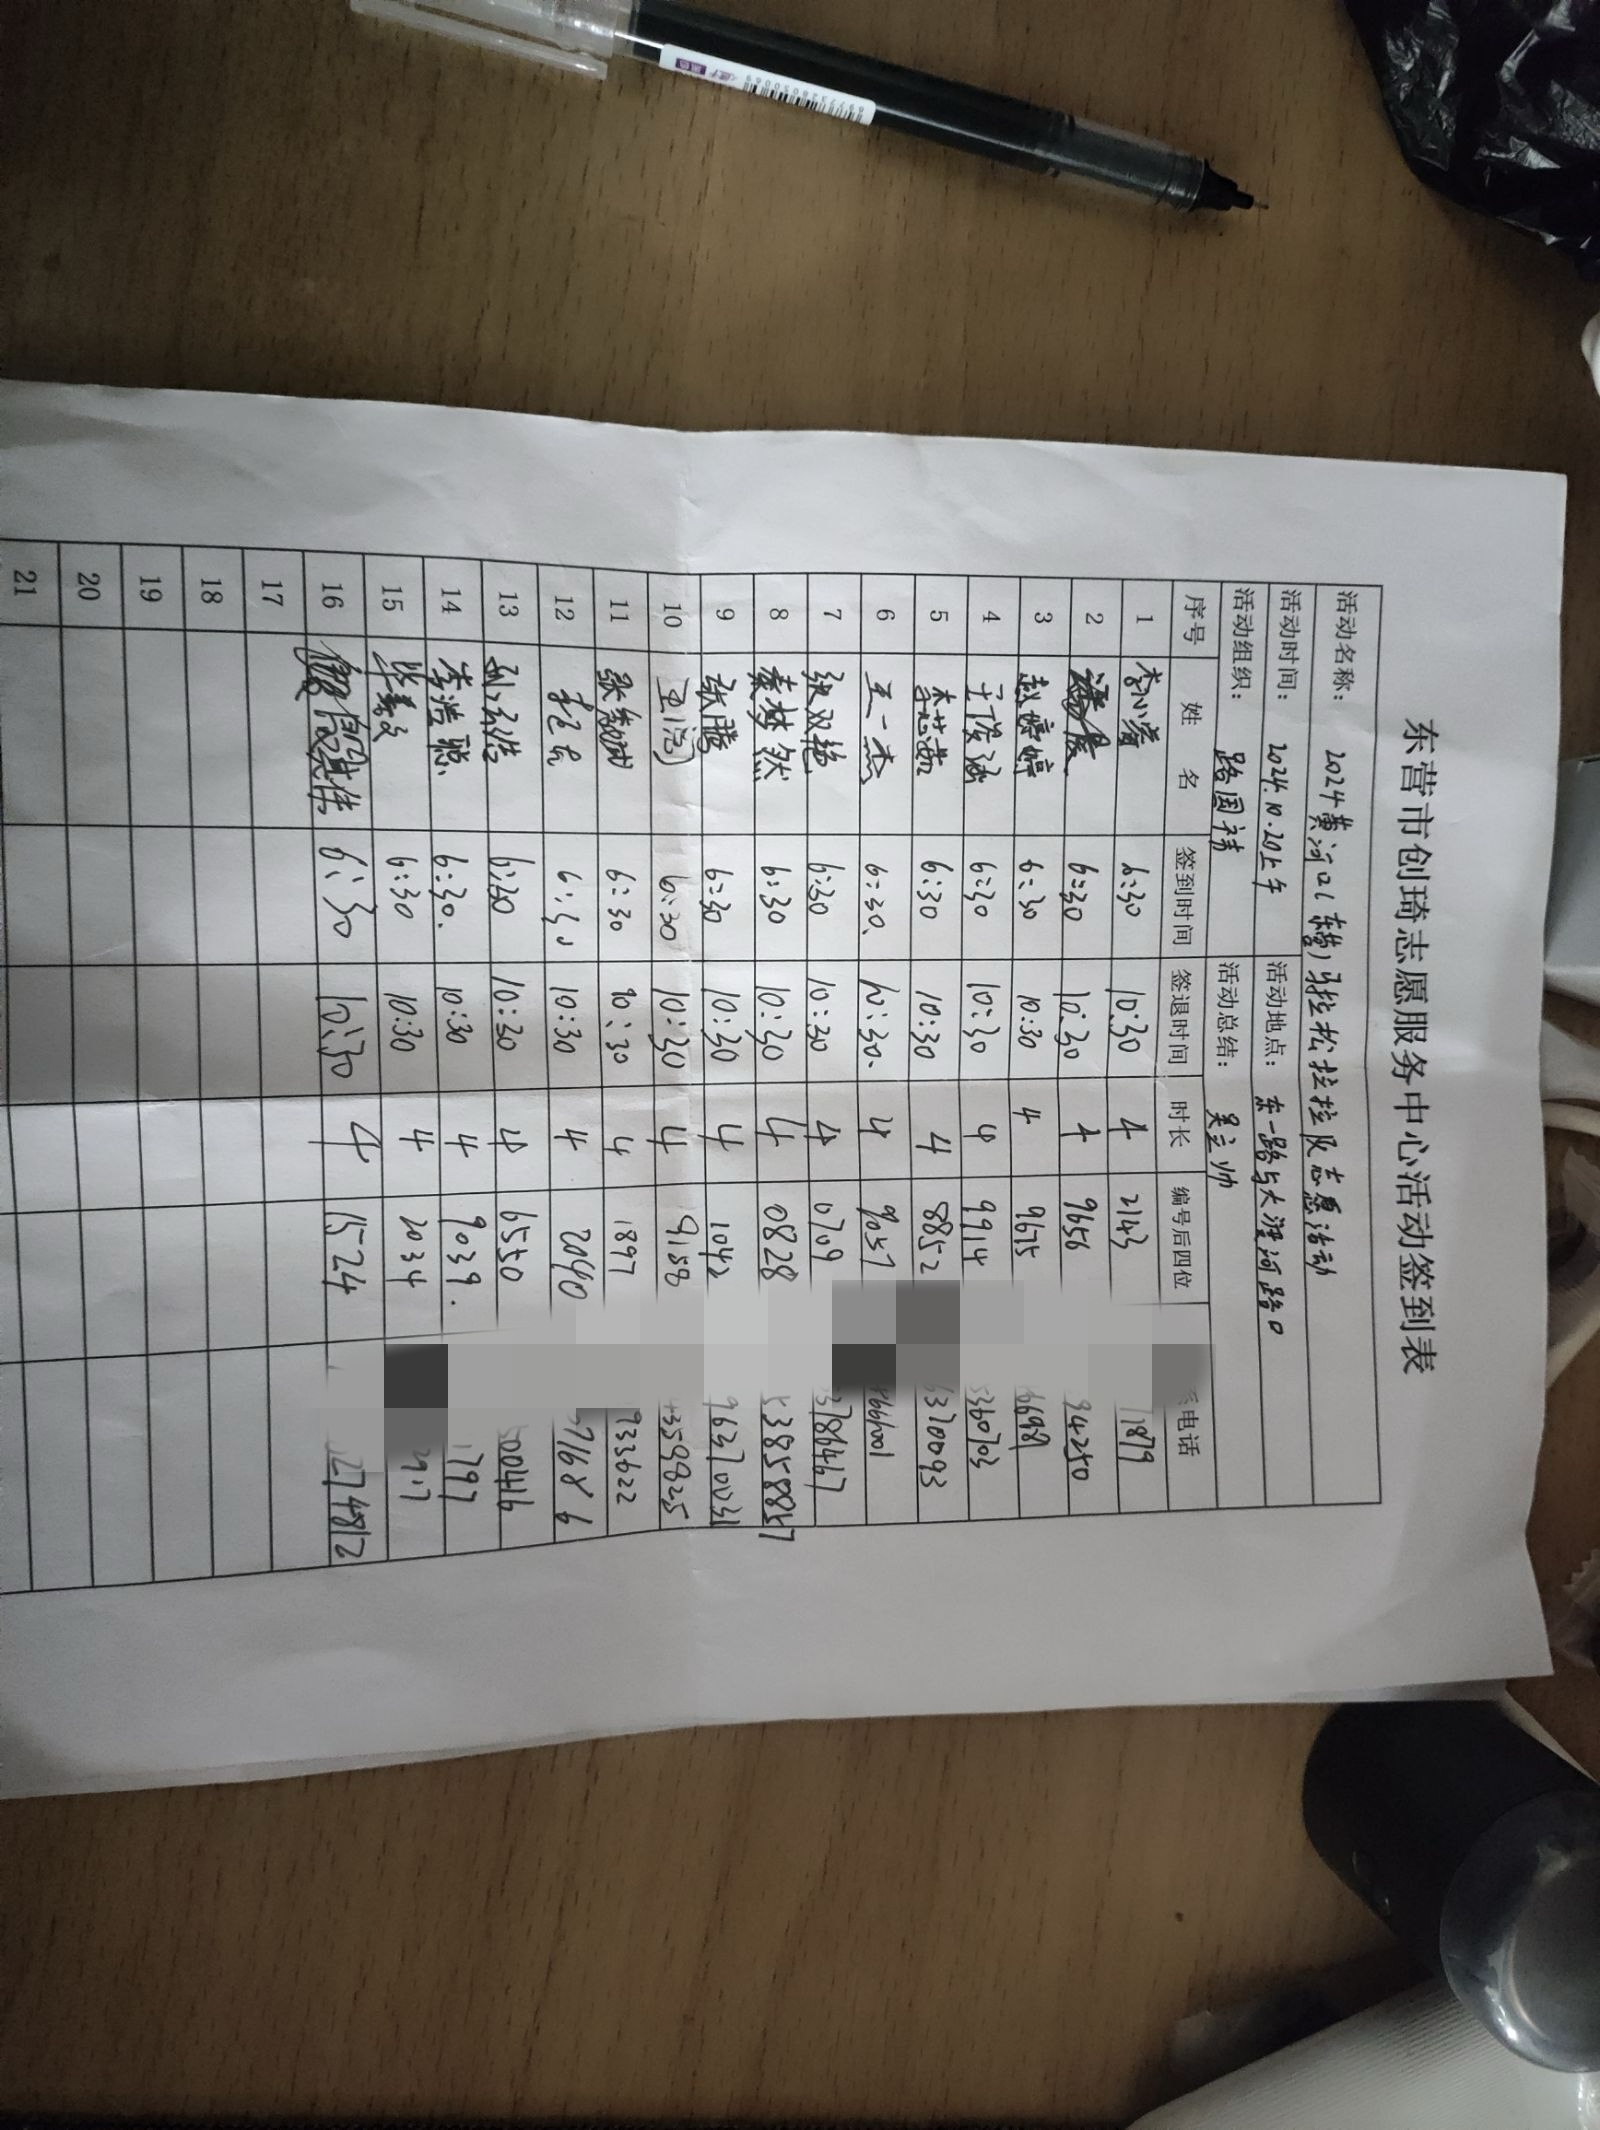 东营市创琦志愿服务中心活动签到表
活动名称： 2024黄河口（东营）马拉松拉拉队志愿活动
活动时间： 2024.10.20上午 活动地点： 东一路与大渡河路口
活动组织： 路国祎 活动总结： 吴立帅
序号 姓 名 签到时间 签退时间 时长 编号后四位 系电话
1 6:30 10:30 4 2143 1879
2 6:30 10:30 4 9656 34250
3 赵婷婷 6:30 10:30 4 9675 6698
4 6:30 10:30 4 9914 5360703
5 李芯茹 6:30 10:30 4 8852 6370093
6 王一杰 6:30. 10:30. 4 9057 4661001
7 张双艳 6:30 10:30 4 0709 3786447
8 秦梦然 6:30 10:30 4 0828
9 张腾 6:30 10:30 4 1042 963700
10 6:30 10:30 4 9158 43598255
11 6:30 10:30 4 1897 9233622
12 6:30 10:30 4 2090 271686
13 6:30 10:30 4 6550 500416
14 李浩 6:30. 10:30 4 9039. 1797
15 6:30 10:30 4 2034 2917
16 6:30 10:30 4 1524 274812
17
18
19
20
21